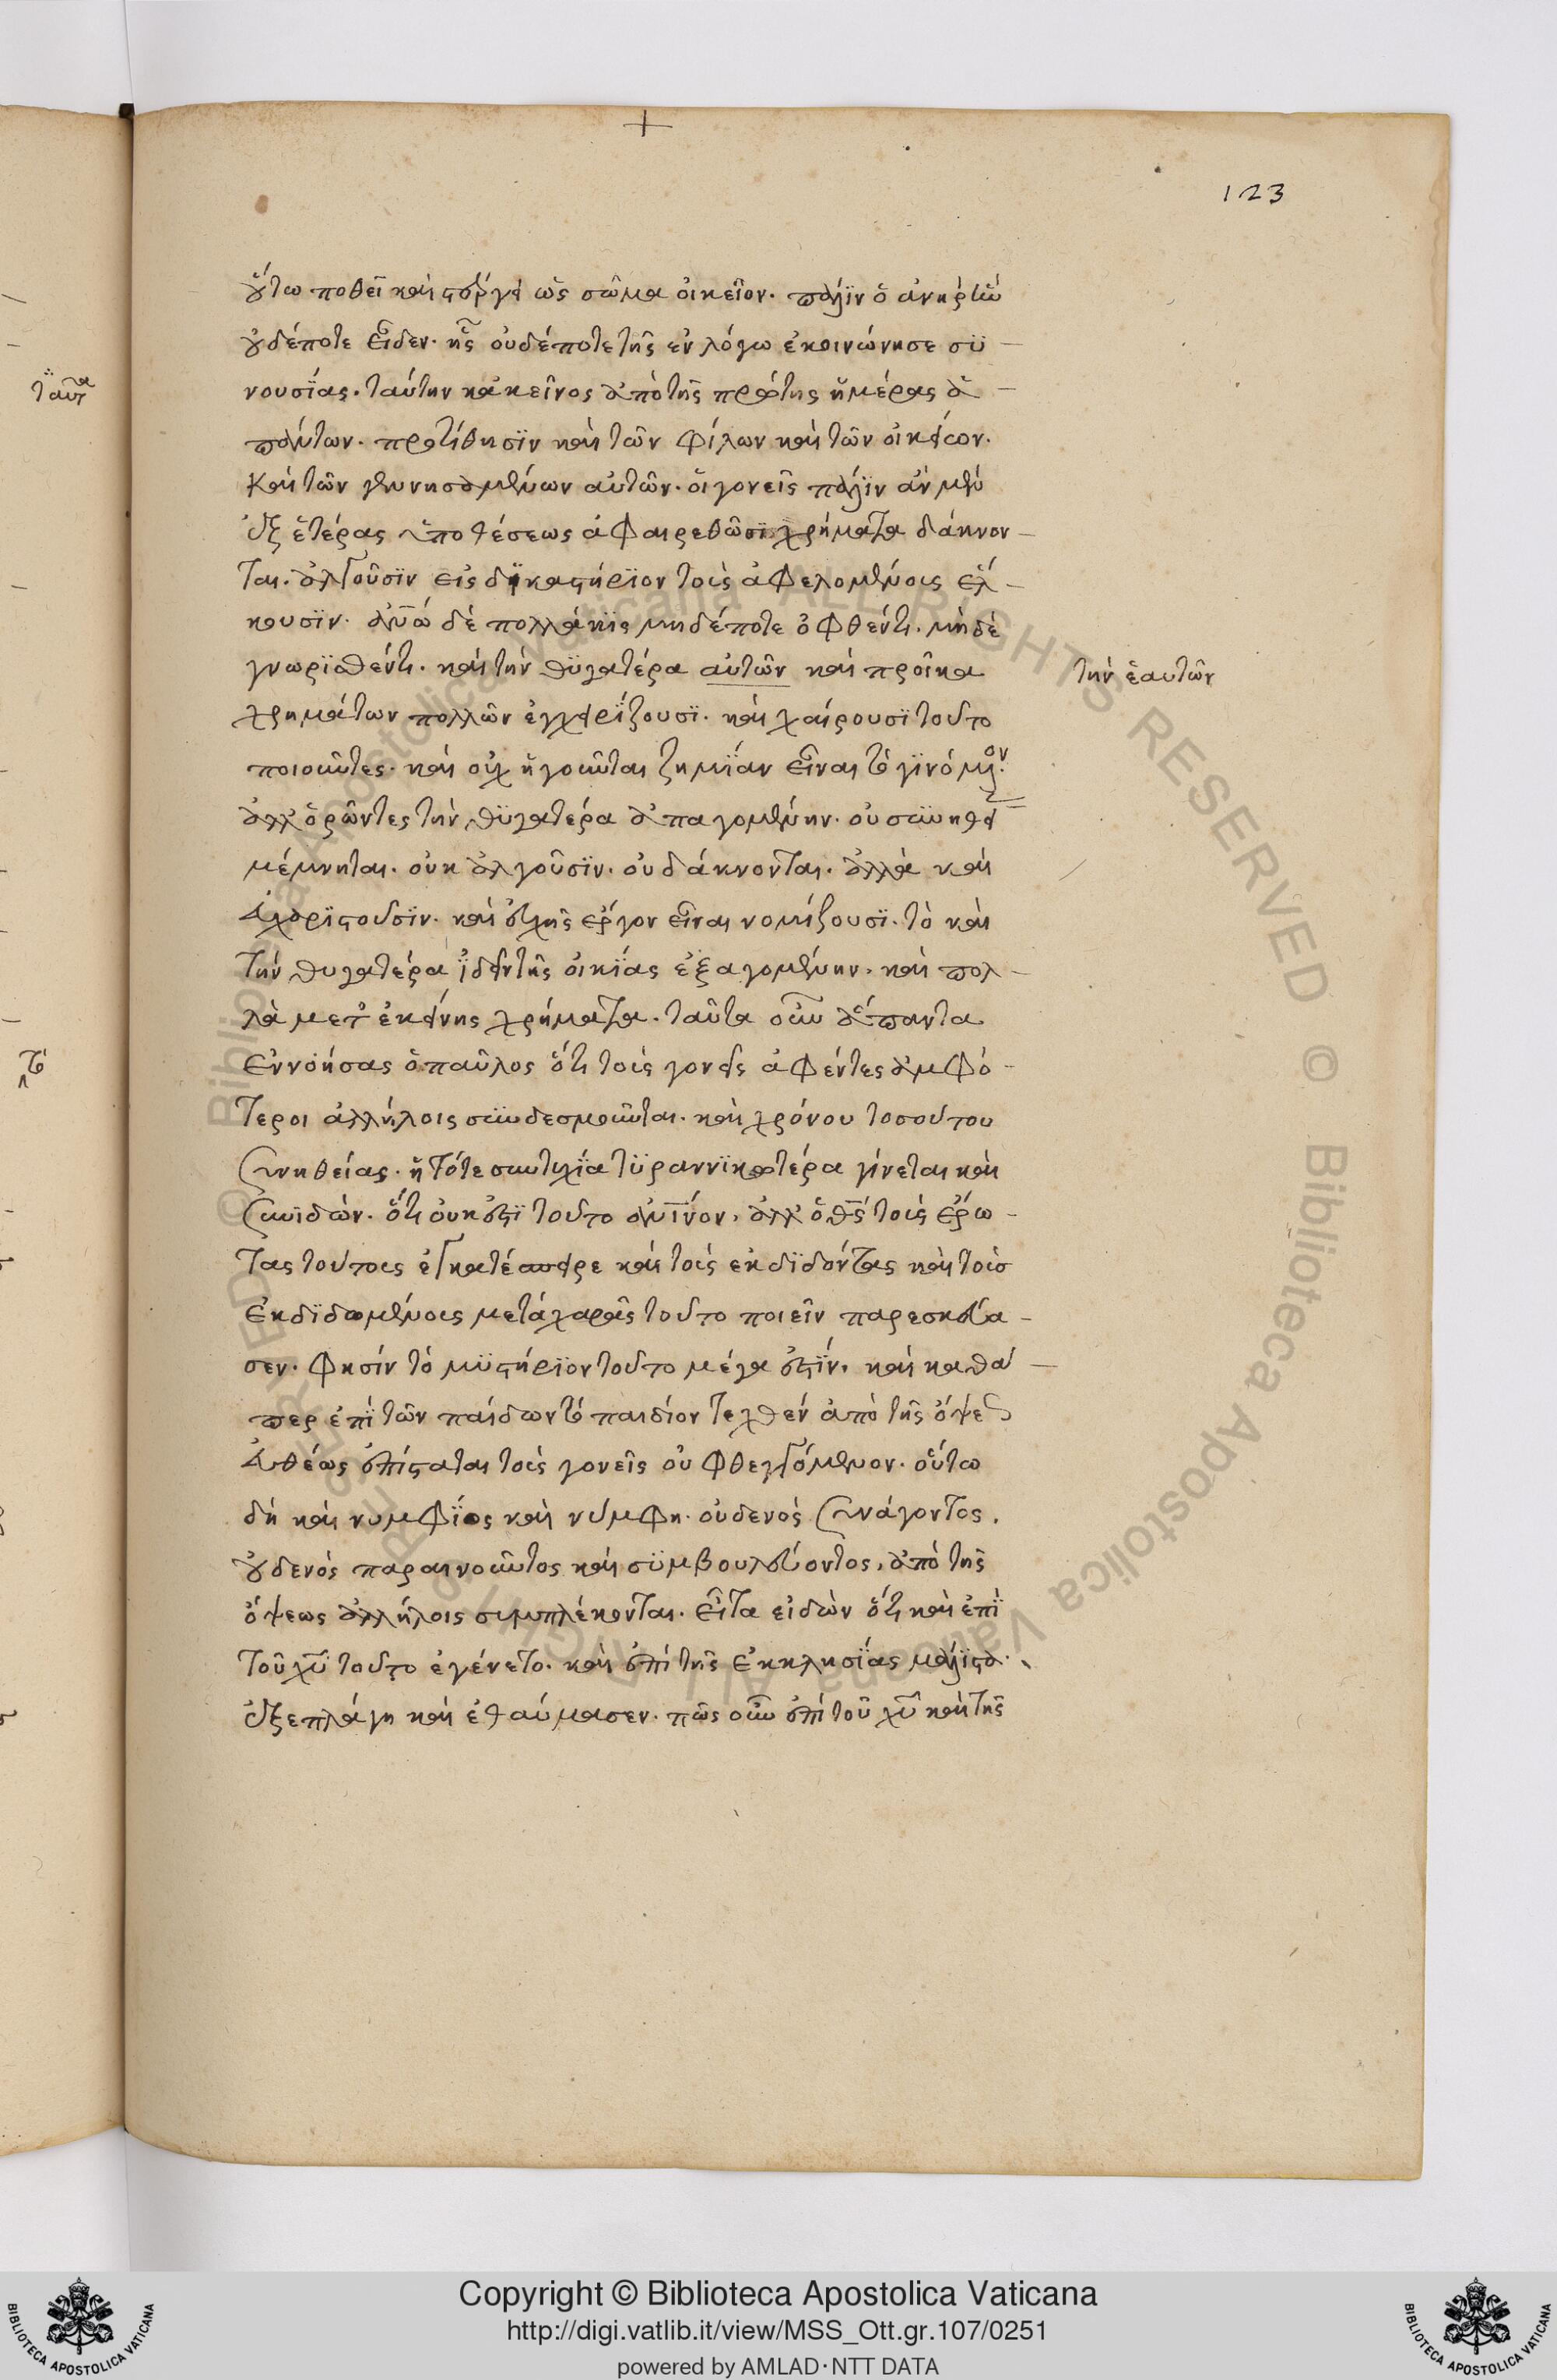 123
οὕτω ποθεῖ καὶ στέργει ὡς σῶμα οἰκεῖον. πάλιν ὁ ἀνὴρ ἣν
οὐδέποτε εἶδεν. ἧς οὐδέποτε τῆς ἐν λόγω ἐκοινώνησε συ
νουσίας. ταύτην κἀκεῖνος ἀπὸ τῆς πρώτης ἡμέρας ἁ
πάντων. προτίθησιν καὶ τῶν φίλων καὶ τῶν οἰκείων.
καὶ τῶν γεννησαμένων αὐτῶν. οἱ γονεῖς πάλιν ἂν μὲν
ἐξ ἑτέρας ὑποθέσεως ἀφαιρεθῶσι χρήματα δάκνον
ται. ἀλγοῦσιν εἰς δικαστήριον τοὺς ἀφελομένους ἕλ
κουσιν. ἀνῶ δὲ πολλάκις μηδέποτε ὀφθέντι. μηδὲ
γνωρισθέντι. καὶ τὴν θυγατέρα αὐτῶν καὶ προῖκα
τὴν ἑαυτῶν
χρημάτων πολλῶν ἐγχειρίζουσι. καὶ χαίρουσι τοῦτο
ποιοῦντες. καὶ οὐχ ἡγοῦνται ζημίαν εἶναι τὸ γινόμενον.
ἀλλ' ὁρῶντες τὴν θυγατέρα ἀπαγομένην. οὐ συνηθεί
μέμνηται. οὐκ ἀλγοῦσιν. οὐ δάκνονται. ἀλλὰ καὶ
εὐχαριστοῦσιν. καὶ εὐχῆς ἔργον εἶναι νομίζουσι. τὸ καὶ
τὴν θυγατέρα ἰδεῖν τῆς οἰκίας ἐξαγομένην. καὶ πολ
λὰ μετ' ἐκείνης χρήματα. ταῦτα οὖν ἅπαντα
ἐννοήσας ὁ παῦλος ὅτι τοὺς γονεῖς ἀφέντες ἀμφό
τεροι ἀλλήλοις συνδεσμοῦνται. καὶ χρόνου τοσούτου
συνηθείας. ἡ τότε συντυχία τυραννικωτέρα γίνεται καὶ
συνιδὼν. ὅτι οὐκ ἔστι τοῦτο ἀνινον. ἀλλ' ὁ θς τοὺς ἔρω
τας τούτους ἐγκατέσπειρε καὶ τοὺς ἐκδιδόντας καὶ τοὺς
ἐκδιδομένους μετὰ χαρᾶς τοῦτο ποιεῖν παρεσκεύα
σεν. φησὶν τὸ μυστήριον τοῦτο μέγα ἐστίν. καὶ καθά
περ ἐπὶ τῶν παίδων τὸ παιδίον τεχθὲν ἀπὸ τῆς ὄψεως
εὐθέως ἐπίσταται τοὺς γονεῖς οὐ φθεγγόμενον. οὕτω
δὴ καὶ νυμφίος καὶ νύμφη. οὐδενὸς συνάγοντος.
οὐδενὸς παραινοῦντος καὶ συμβουλεύοντος. ἀπὸ τῆς
ὄψεως ἀλλήλοις συμπλέκονται. εἶτα εἰδὼν ὅτι καὶ ἐπὶ
τοῦ χυ τοῦτο ἐγένετο. καὶ ἐπὶ τῆς ἐκκλησίας μάλιστα.
ἐξεπλάγη καὶ ἐθαύμασεν. πῶς οὖν ἐπὶ τοῦ χυ καὶ τῆς
Copyright © Biblioteca Apostolica Vaticana
http://digi.vatlib.it/view/MSS_Ott.gr.107/0251
powered by AMLAD·NTT DATA